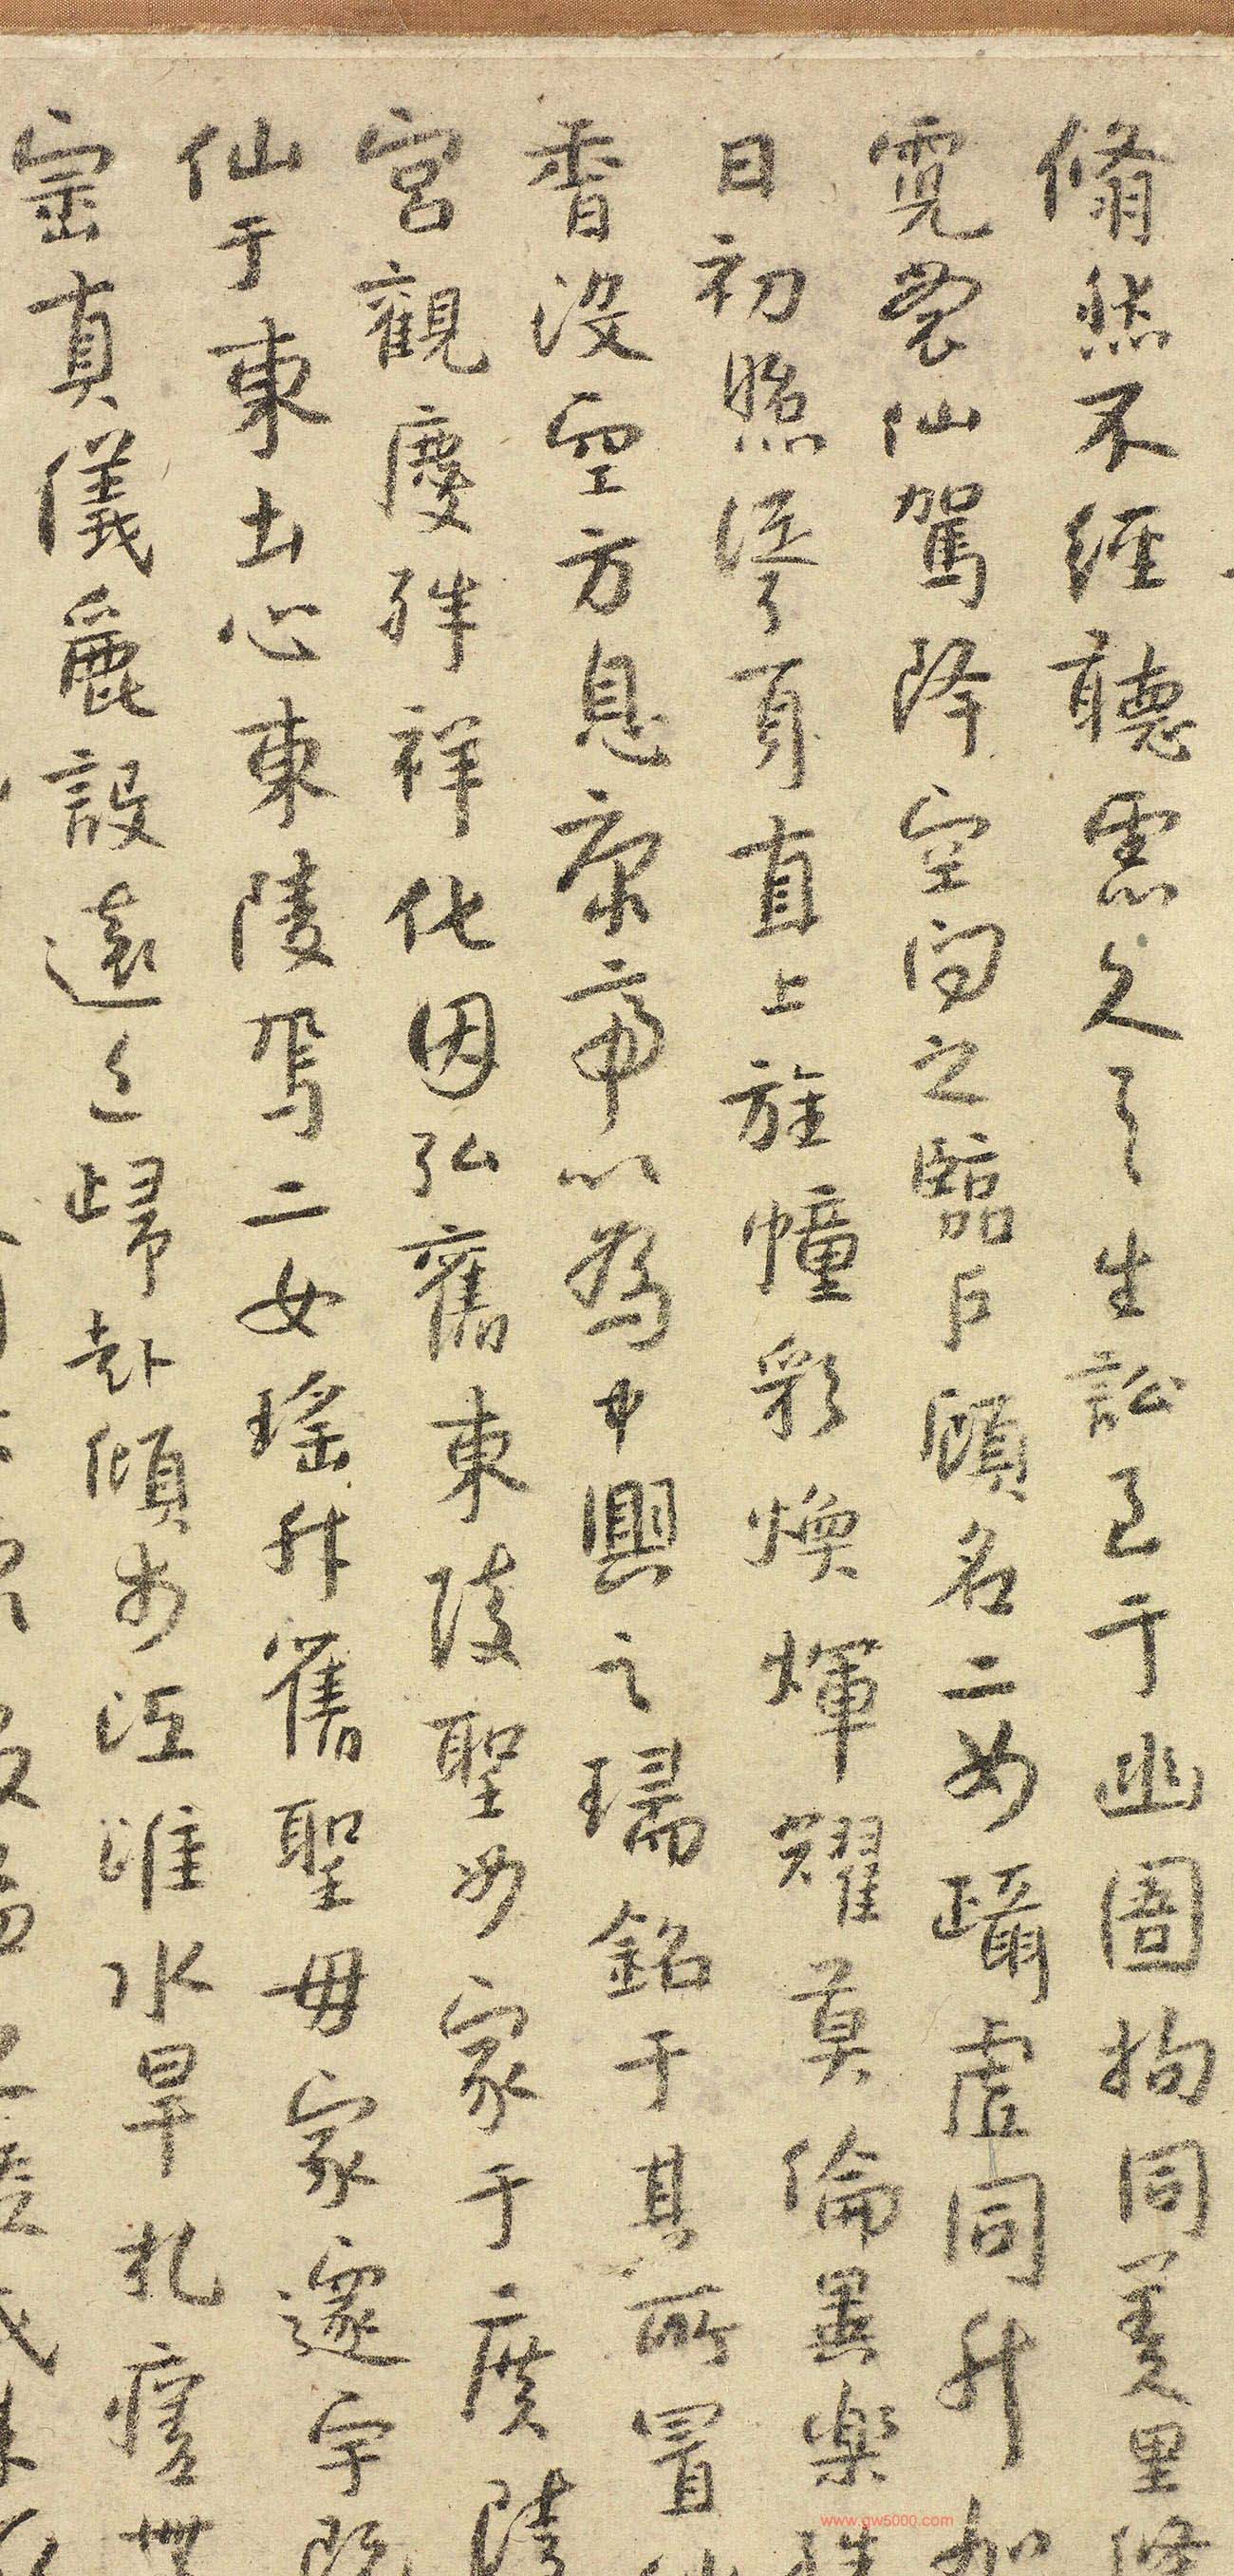 翛然不經聽慝久之生訟至于幽圄拘同羑里
霓裳仙駕降空同之臨戶顧名二女躡虛同升
日初照渗頁直上旌幢彩煥輝耀莫倫異樂殊
香沒空方息康帝以為中興之瑞銘于其所置仙
宮觀慶殊祥化因弘舊東陵聖母家于廣陵
仙于東土心東陵焉二女瑤升舊聖母家邃宇既
崇真儀麗設遠近歸赴傾市江淮水旱札瘥無
www.gw5000.com